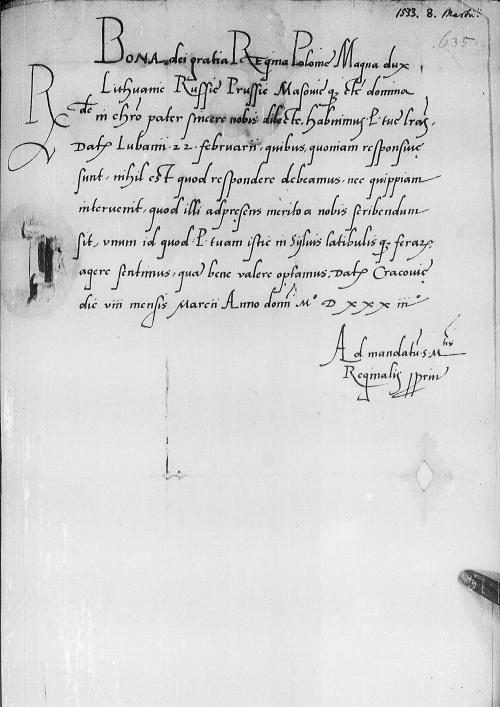 1533. 8. Martii.
635
BONA dei gratia Regina Polonie Magna dux
Lithuanie Russie Prussie Masovie q3 etc domina
Rde in chro pater sincere nobis dilecte. habuimus P. tue lras.
Datas Lubanii . 22 . februarii . quibus, quoniam responsive
sunt . nihil est quod respondere debeamus . nec quippiam
intervenit, quod illi ad presens merito a nobis scribendum
sit, unum id quod P. tuam istic in sylvis latibulis q3 feraru
agere sentimus, qua bene valere optamus, Dat Cracovie
die viii mensis Marcii Anno domi Mo D xxx iiio
Ad mandatu s Mtis
Reginalis ppriu